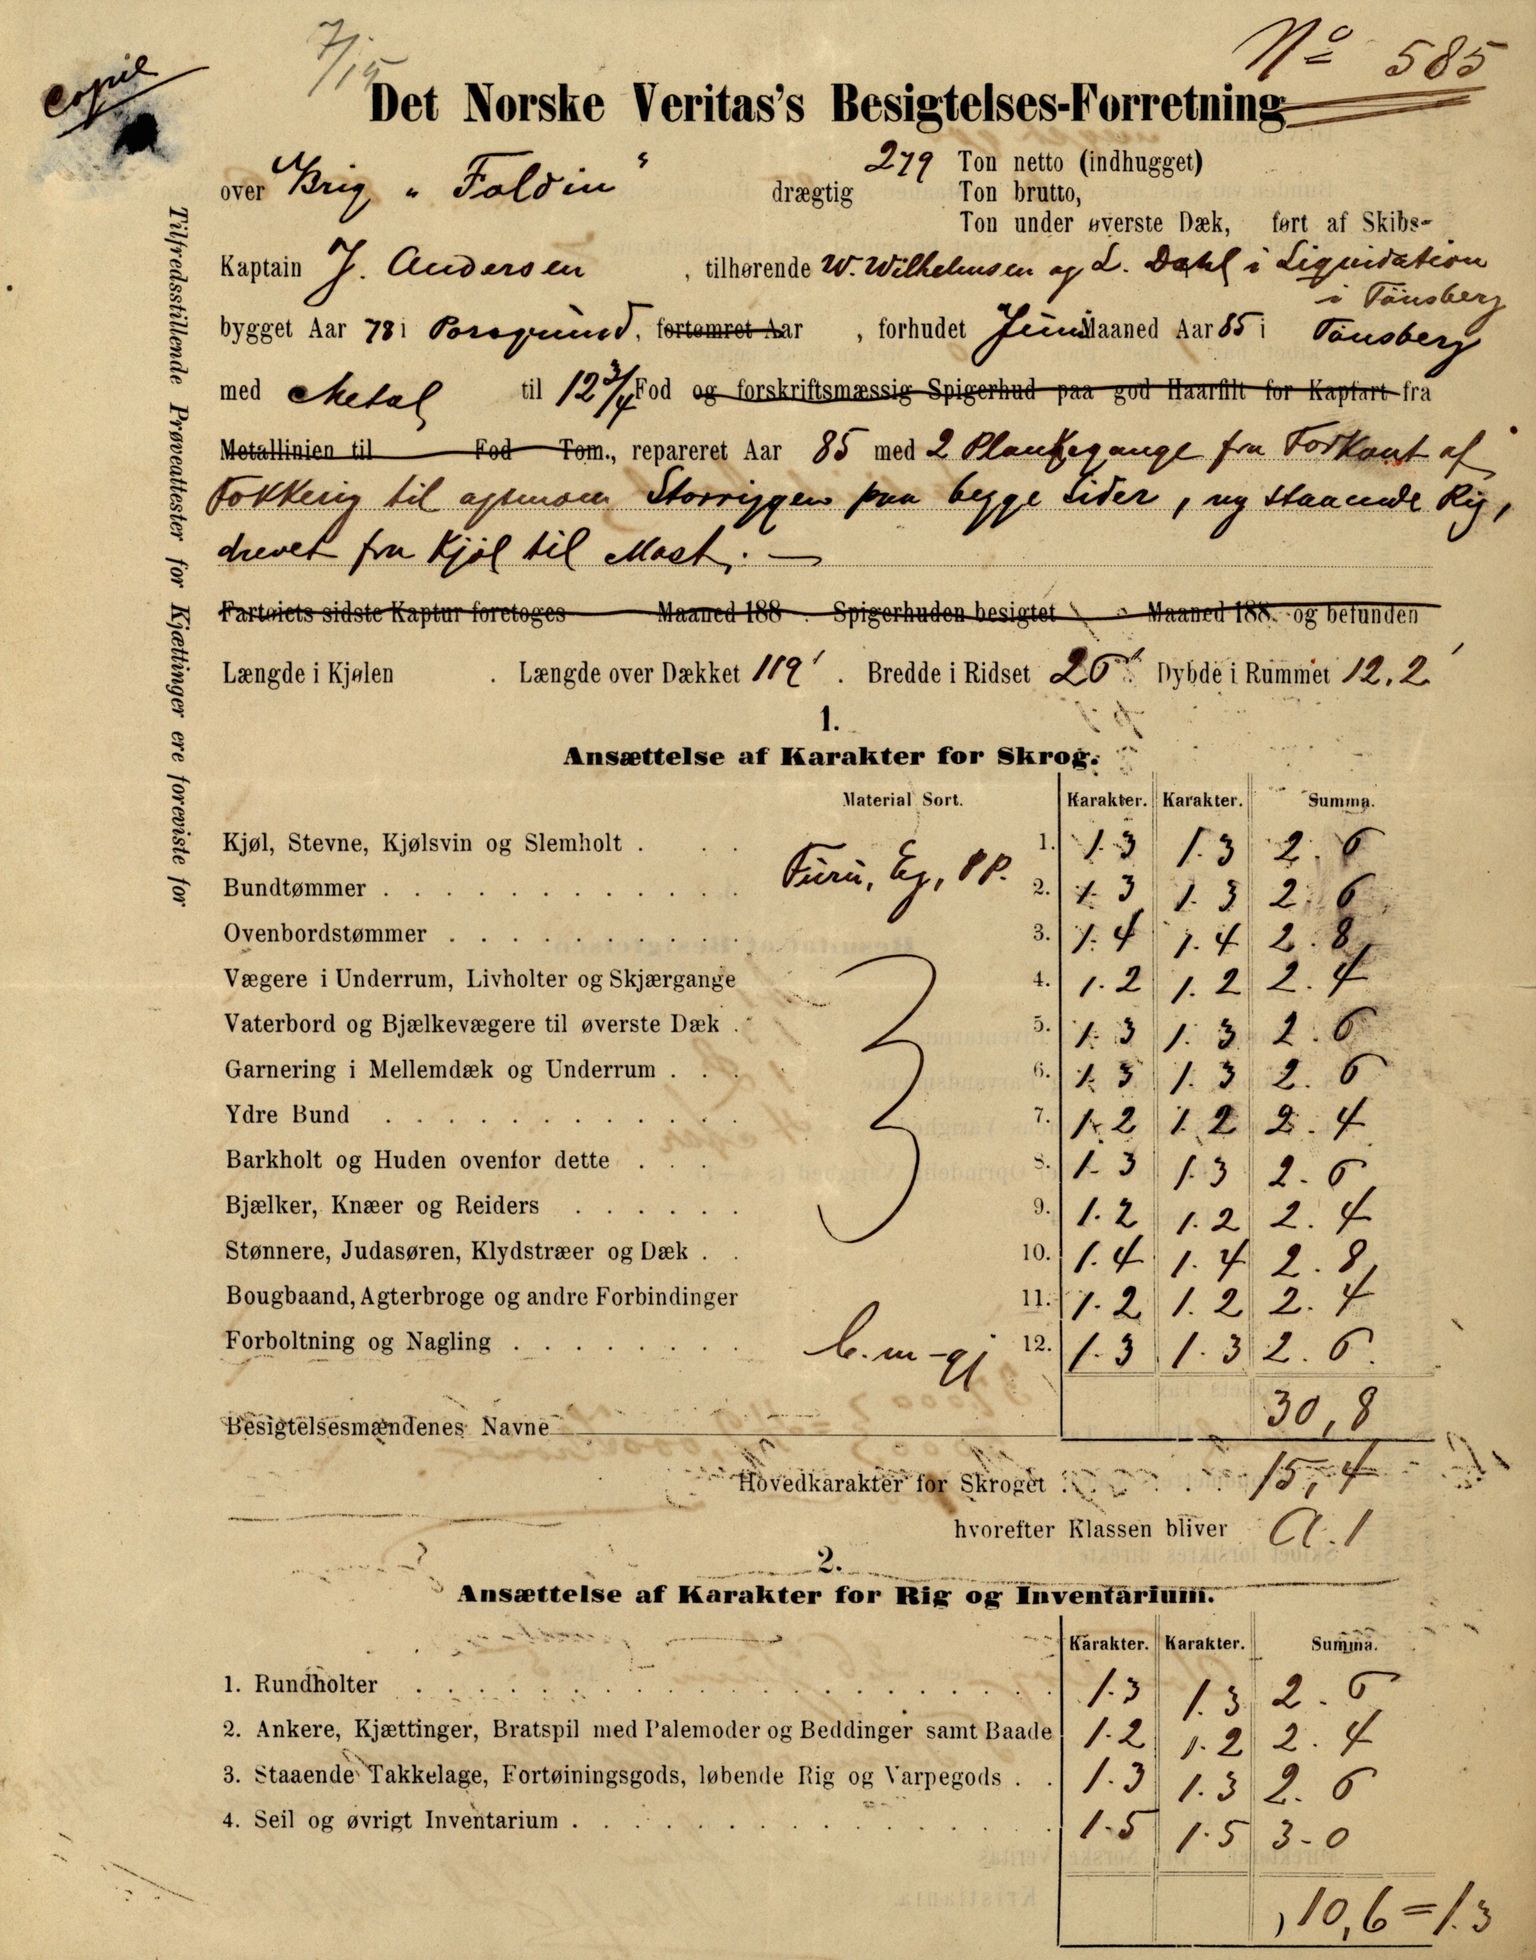 7/15
No 585
Copie
Det Norske Veritas's Besigtelses-Forretning
over Brig „Foldin“ drægtig 279 Ton netto (indhugget)
Ton brutto,
Ton under øverste Dæk, ført af Skibs-
Kaptain J. Andersen, tilhørende W. Wilhelmsen og L. Dahl i Liquidation
i Tönsberg
bygget Aar 78 i Porsgrund, fortømret Aar , forhudet Juni Maaned Aar 85 i Tönsberg
med Metal til 12 3/4 Fod og forskriftsmæssig Spigerhud paa god Haarfilt for Kapfart fra
Metallinien til Fod Tom., repareret Aar 85 med 2 Plankegange fra Forkant af
Fokkerig til agtenom Storriggen paa begge Sider, ny staaende Rig,
drevet fra Kjøl til Mast. —
Fartøiets sidste Kaptur foretoges Maaned 188 . Spigerhuden besigtet Maaned 188 . og befunden
Længde i Kjølen . Længde over Dækket 119' . Bredde i Ridset 26' . Dybde i Rummet 12.2'
1.
Ansættelse af Karakter for Skrog.
Material Sort. Karakter. Karakter. Summa.
Kjøl, Stevne, Kjølsvin og Slemholt . . . 1. 1.3 1.3 2.6
Furu, Eg, PP.
Bundtømmer . . . 2. 1.3 1.3 2.6
Ovenbordstømmer . . . 3. 1.4 1.4 2.8
Vægere i Underrum, Livholter og Skjærgange 4. 1.2 1.2 2.4
Vaterbord og Bjælkevægere til øverste Dæk . 5. 1.3 1.3 2.6
Garnering i Mellemdæk og Underrum . . . 6. 1.3 1.3 2.6
Ydre Bund . . . 7. 1.2 1.2 2.4
Barkholt og Huden ovenfor dette . . . 8. 1.3 1.3 2.6
Bjælker, Knæer og Reiders . . . 9. 1.2 1.2 2.4
Stønnere, Judasøren, Klydstræer og Dæk . . 10. 1.4 1.4 2.8
Bougbaand, Agterbroge og andre Forbindinger 11. 1.2 1.2 2.4
Forboltning og Nagling . . . 12. 1.3 1.3 2.6.
30,8
Besigtelsesmændenes Navne
Hovedkarakter for Skroget . 15,4
hvorefter Klassen bliver A.1
2.
Ansættelse af Karakter for Rig og Inventarium.
Karakter. Karakter. Summa.
1. Rundholter . . . 1.3 1.3 2.6
2. Ankere, Kjættinger, Bratspil med Palemoder og Beddinger samt Baade 1.2 1.2 2.4
3. Staaende Takkelage, Fortøiningsgods, løbende Rig og Varpegods . . 1.3 1.3 2.6
4. Seil og øvrigt Inventarium . . . 1.5 1.5 3.0
10,6 = 1.3
Tilfredsstillende Prøveattester for Kjættinger ere foreviste for